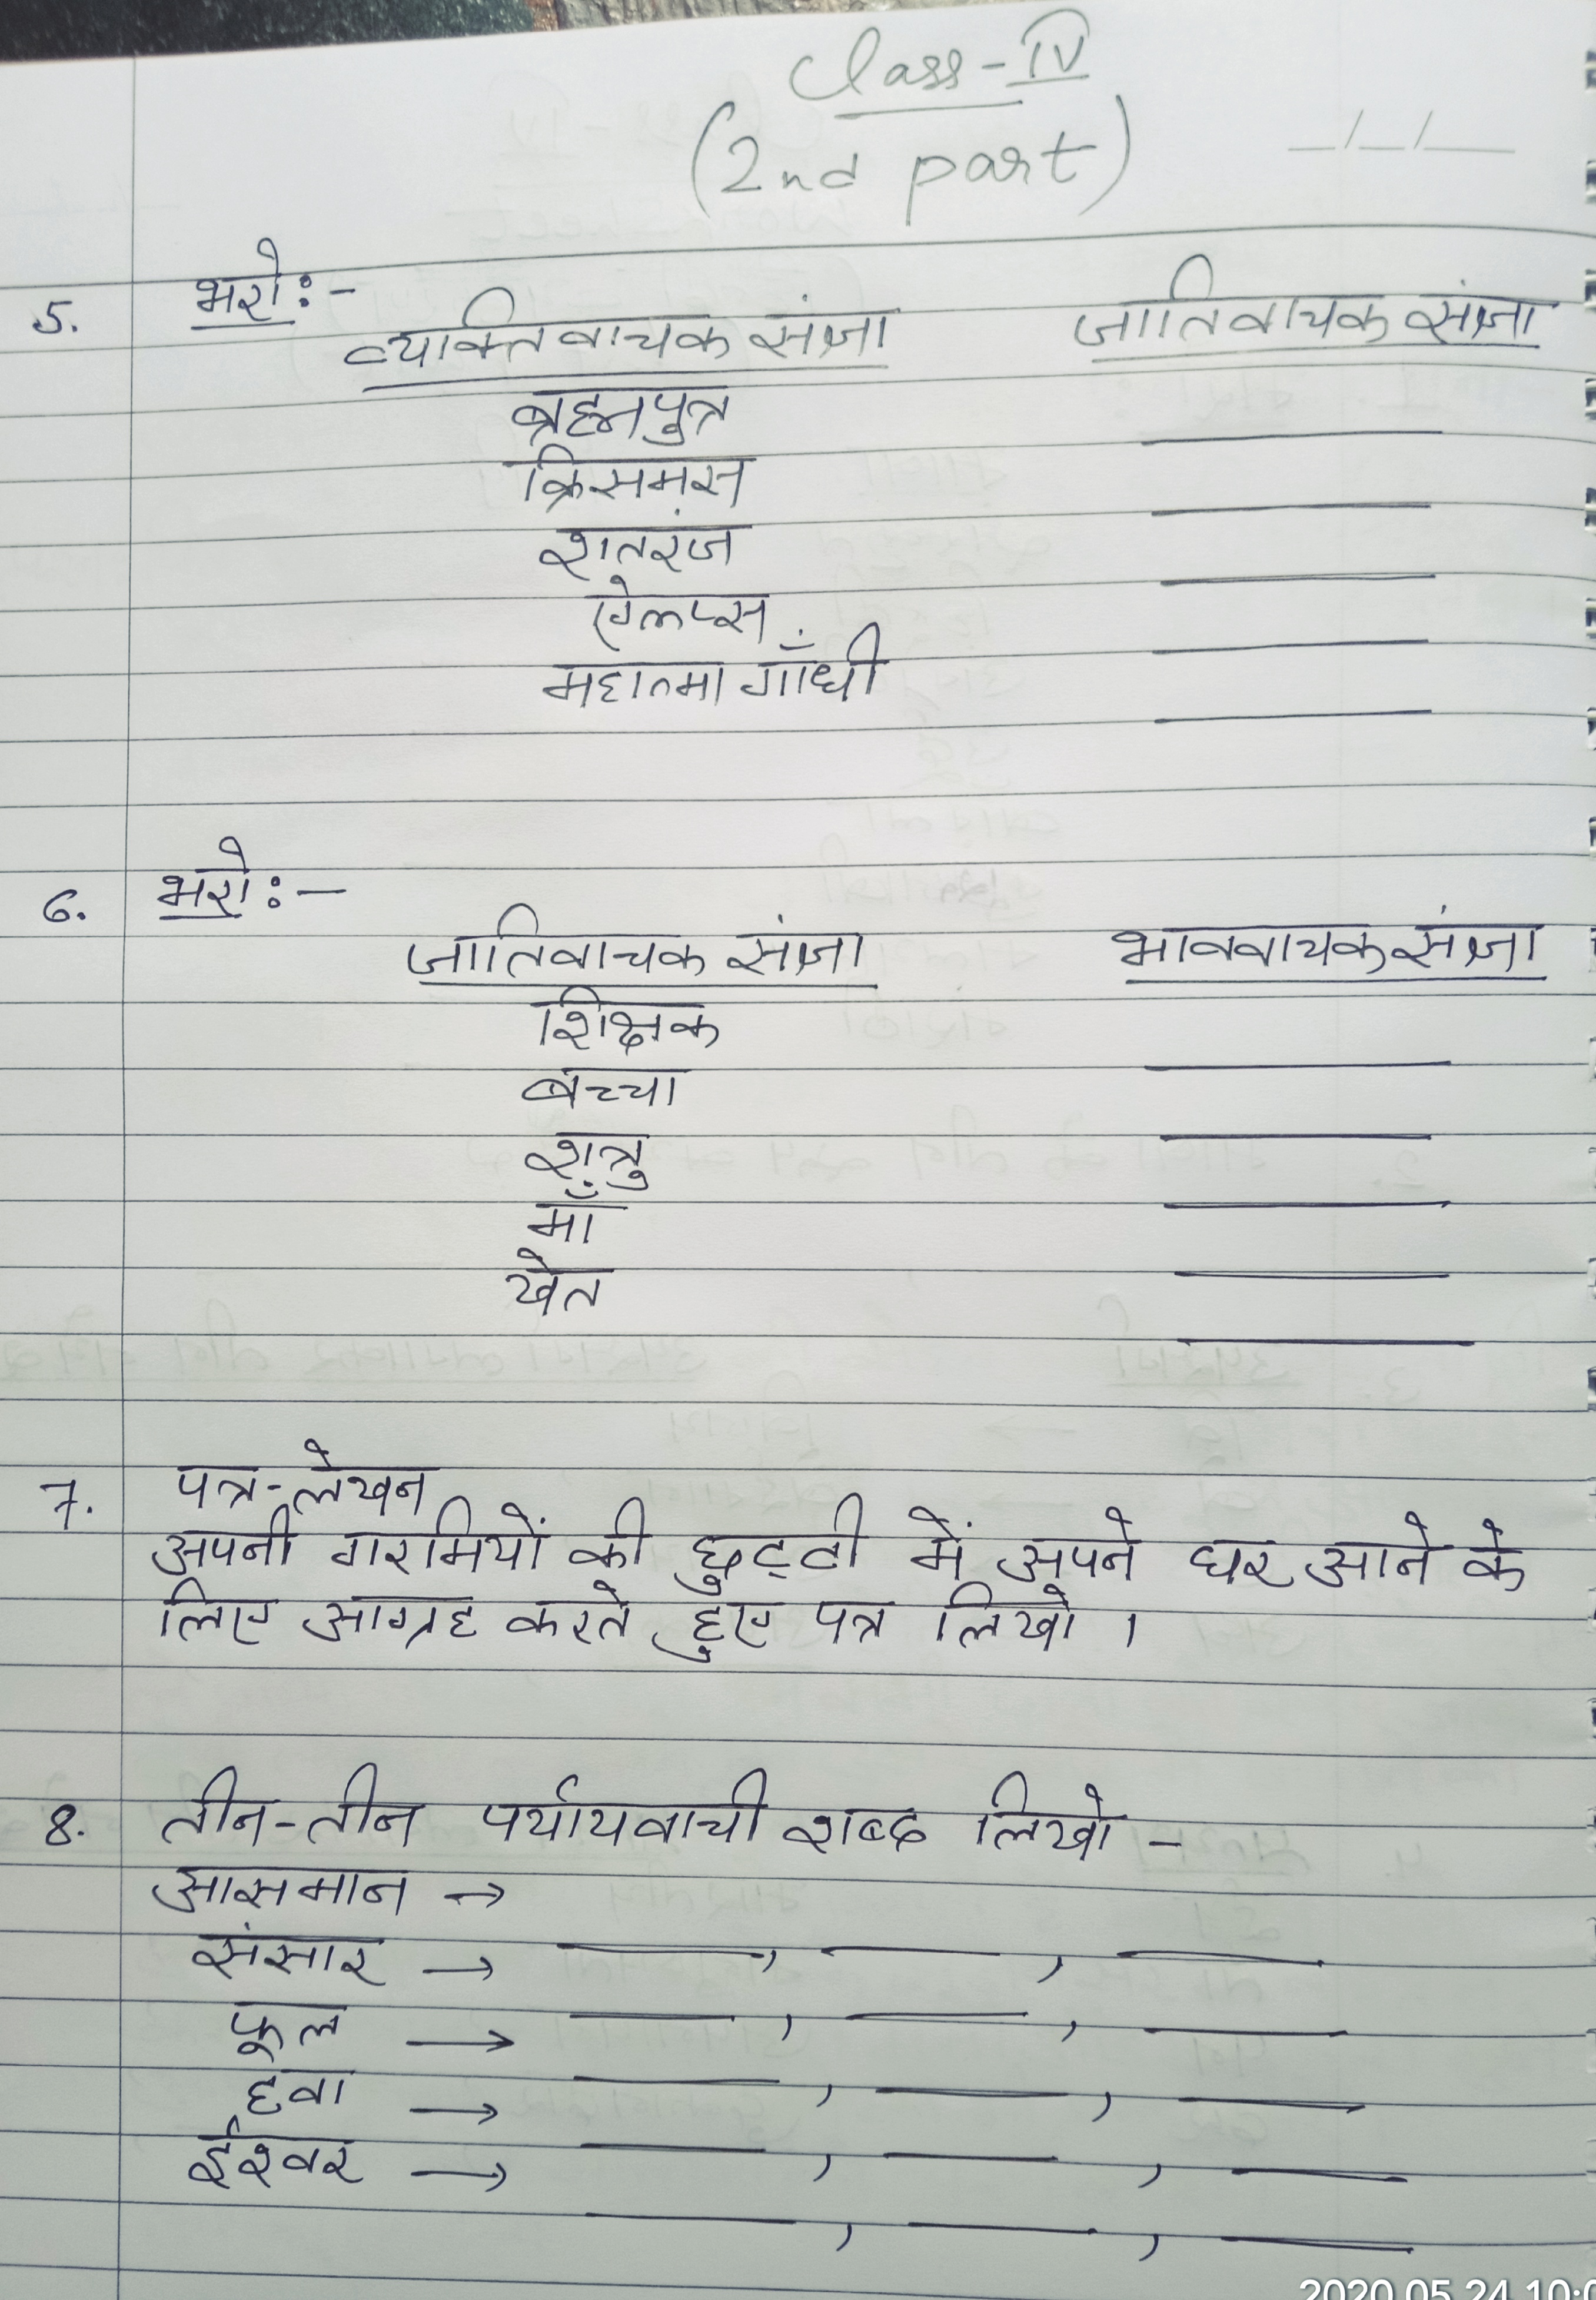 Class-IV
(2nd part)
__/__/__
5. भरो:-
व्यक्तिवाचक संज्ञा जातिवाचक संज्ञा
ब्रह्मपुत्र
क्रिसमस
शतरंज
ऐल्प्स
महात्मा गाँधी
6. भरो:-
जातिवाचक संज्ञा भाववाचक संज्ञा
शिक्षक
बच्चा
शत्रु
माँ
खेत
7. पत्र-लेखन
अपनी गरमियों की छुट्टी में अपने घर आने के
लिए आग्रह करते हुए पत्र लिखो ।
8. तीन-तीन पर्यायवाची शब्द लिखो -
आसमान →
संसार → ____, ____, ____
फूल → ____, ____, ____
हवा → ____, ____, ____
ईश्वर → ____, ____, ____
____, ____, ____
2020.05.24 10:0